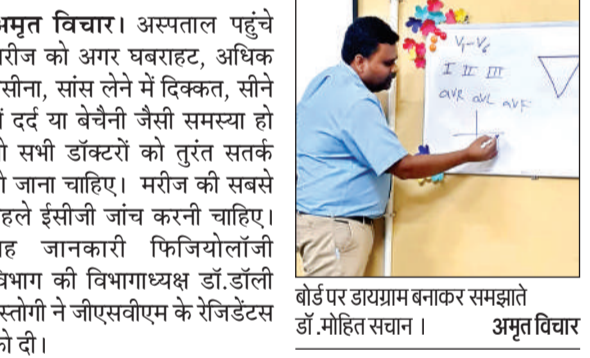 अमृत विचार। अस्पताल पहुंचे
मरीज को अगर घबराहट, अधिक
पसीना, सांस लेने में दिक्कत, सीने
में दर्द या बेचैनी जैसी समस्या हो
तो सभी डॉक्टरों को तुरंत सतर्क
हो जाना चाहिए। मरीज की सबसे
पहले ईसीजी जांच करनी चाहिए।
यह जानकारी फिजियोलॉजी
विभाग की विभागाध्यक्ष डॉ.डॉली
रस्तोगी ने जीएसवीएम के रेजिडेंटस
को दी।
V1-V6
I II III
aVR aVL aVF
बोर्ड पर डायग्राम बनाकर समझाते
डॉ.मोहित सचान। अमृत विचार